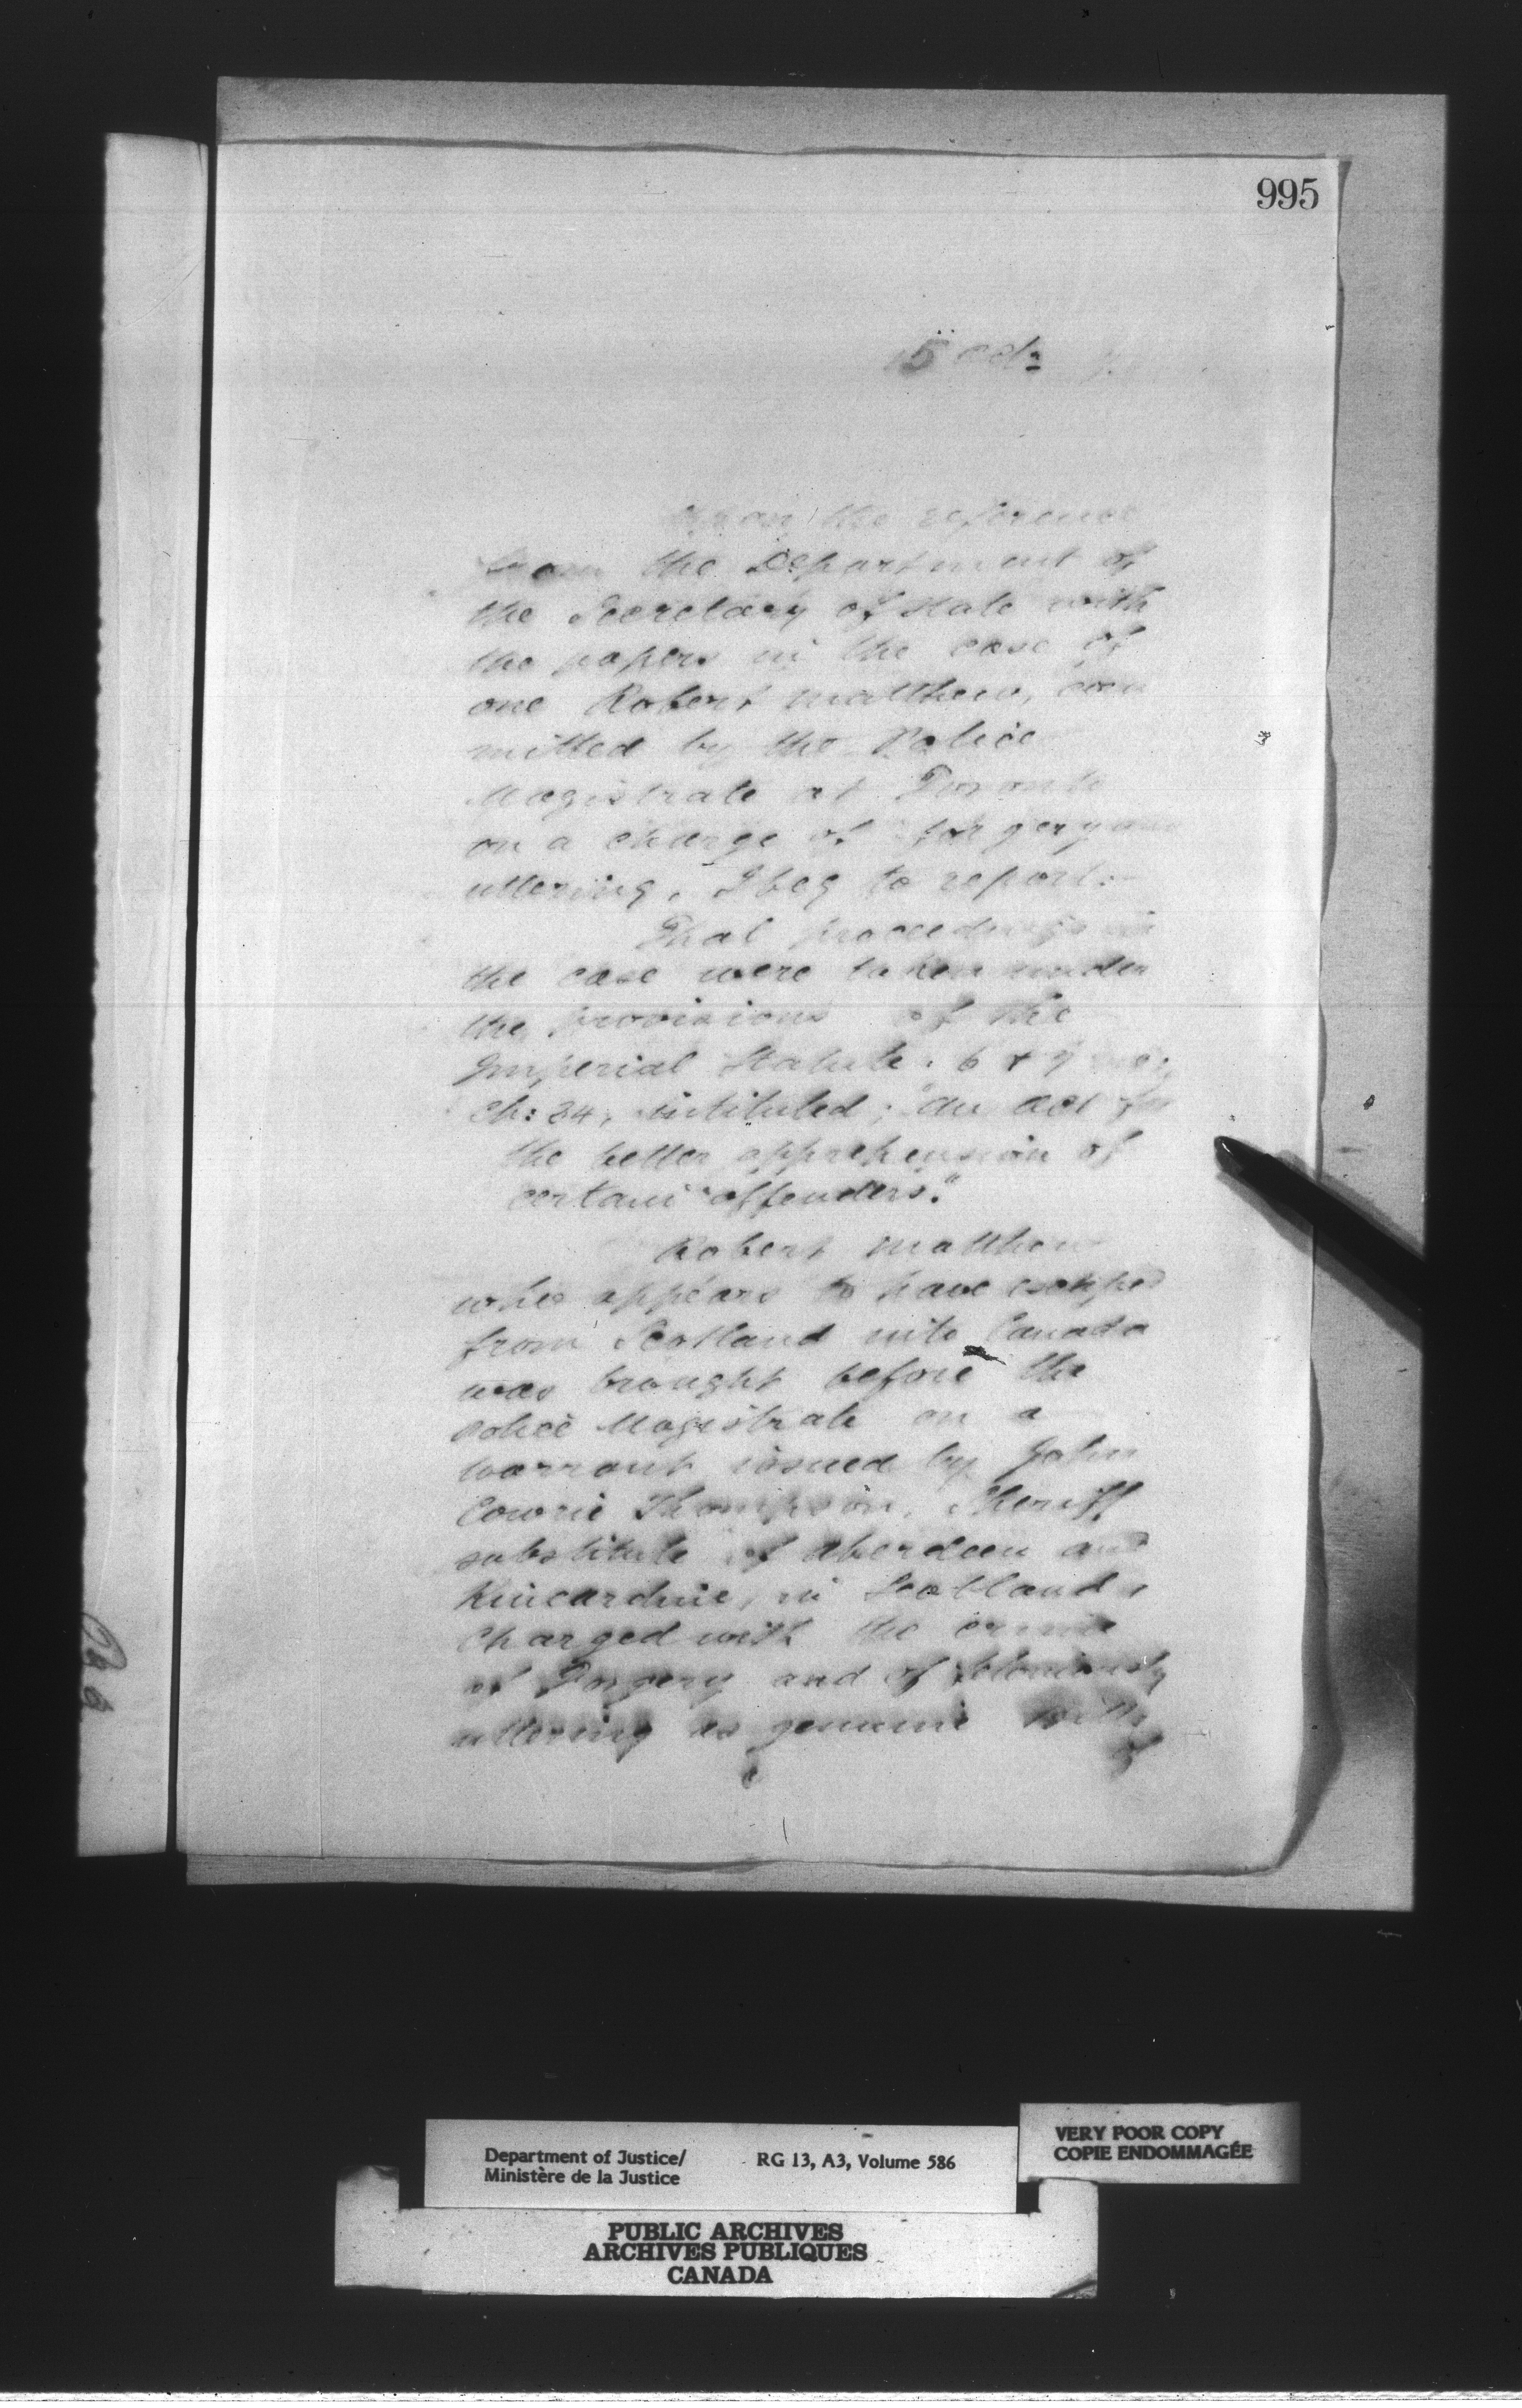 995
5 Oct:
Upon the reference
from the Department of
the Secretary of State with
the papers in the case of
one Robert Matthew, com
mitted by the Police
Magistrate at Toronto
on a charge of forgery and
uttering, I beg to report:—
That proceedings in
the case were taken under
the provisions of the
Imperial Statute. 6 & 7
Ch: 34, intituled; "An Act for
the better apprehension of
certain offenders."
Robert Matthew
who appears to have escaped
from Scotland into Canada
was brought before the
Police Magistrate on a
warrant issued by John
Cowrie Thompson, Sheriff
substitute of Aberdeen and
Kincardine, in Scotland,
charged with the crime
of Forgery and of feloniously
uttering as genuine
Department of Justice/
Ministère de la Justice
RG 13, A3, Volume 586
VERY POOR COPY
COPIE ENDOMMAGÉE
PUBLIC ARCHIVES
ARCHIVES PUBLIQUES
CANADA